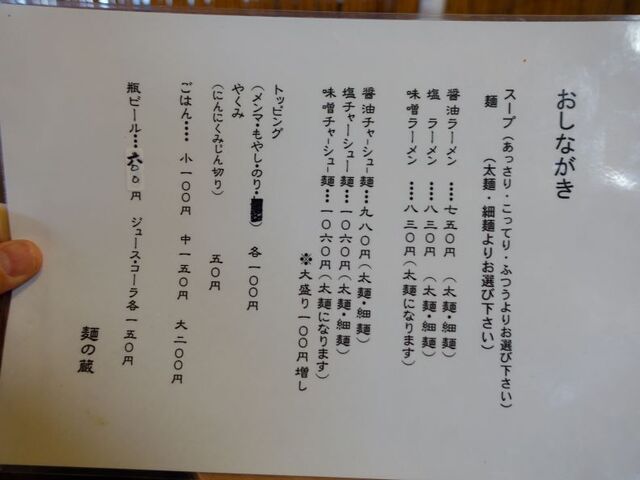 おしながき
スープ(あっさり・こってり・ふつうよりお選び下さい)
麺 (太麺・細麺よりお選び下さい)
醤油ラーメン ‥‥七五〇円 (太麺・細麺)
塩 ラーメン ‥‥八三〇円 (太麺・細麺)
味噌ラーメン ‥‥八三〇円(太麺になります)
醤油チャーシュー麺‥‥九八〇円(太麺・細麺)
塩チャーシュー麺‥‥一〇六〇円(太麺・細麺)
味噌チャーシュー麺‥‥一〇六〇円(太麺になります)
※大盛り一〇〇円増し
トッピング
(メンマ・もやし・のり・) 各一〇〇円
やくみ
(にんにくみじん切り) 五〇円
ごはん‥‥ 小一〇〇円 中一五〇円 大二〇〇円
瓶ビール‥‥六〇〇円 ジュース・コーラ各一五〇円
麺の蔵